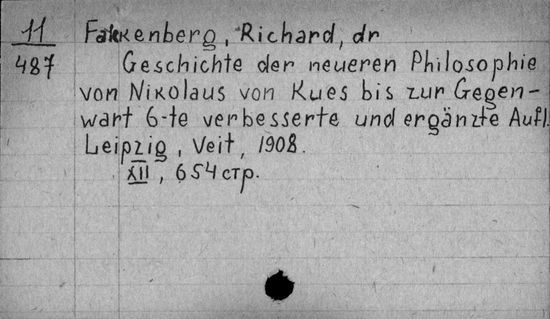 11
487
Falkenberg, Richard, dr
Geschichte der neueren Philosophie
von Nikolaus von Kues bis zur Gegen-
wart 6-te verbesserte und ergänzte Aufl.
Leipzig, Veit, 1908.
XII, 654 стр.